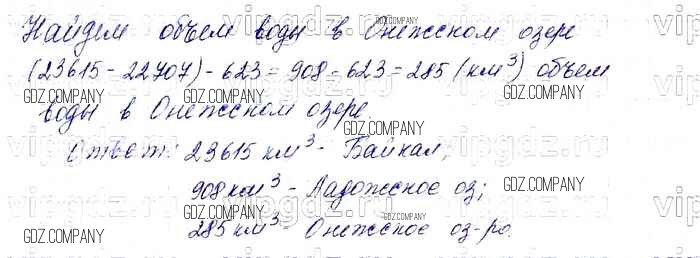 Найдем объем воды в Онежском озере
(23615 - 22707) - 623 = 908 - 623 = 285 (км³) объем
воды в Онежском озере.
Ответ: 23615 км³ - Байкал,
908 км³ - Ладожское оз;
285 км³ - Онежское оз-ро.
GDZ.COMPANY
GDZ.COMPANY
GDZ.COMPANY
GDZ.COMPANY
GDZ.COMPANY
GDZ.COMPANY
GDZ.COMPANY
GDZ.COMPANY
vipgdz.ru